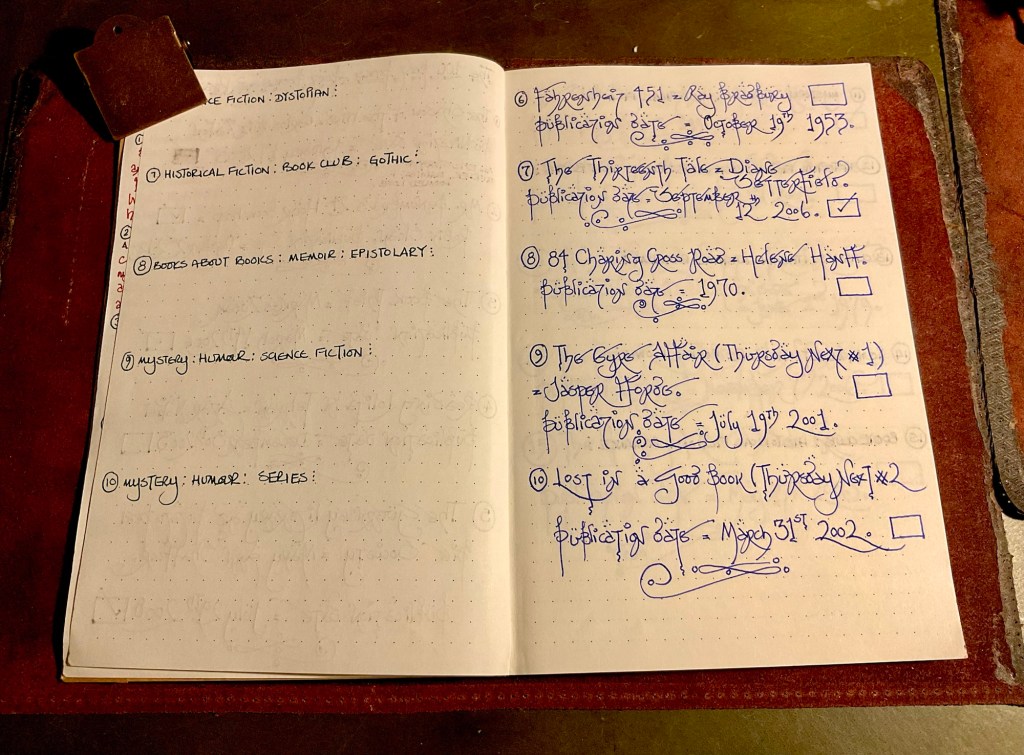 CE FICTION : DYSTOPIAN :
⑦ HISTORICAL FICTION : BOOK CLUB : GOTHIC :
⑧ BOOKS ABOUT BOOKS : MEMOIR : EPISTOLARY :
⑨ MYSTERY : HUMOUR : SCIENCE FICTION :
⑩ MYSTERY : HUMOUR : SERIES :
⑥ Fahrenheit 451 = Ray Bradbury
Publication date = October 19th 1953.
⑦ The Thirteenth Tale = Diane
Setterfield.
Publication date = September
12th 2006.
⑧ 84 Charing Cross Road = Helene Hanff.
Publication date = 1970.
⑨ The Eyre Affair (Thursday Next #1)
= Jasper Fforde.
Publication date = July 19th 2001.
⑩ Lost in a Good Book (Thursday Next #2
Publication date = March 31st 2002.